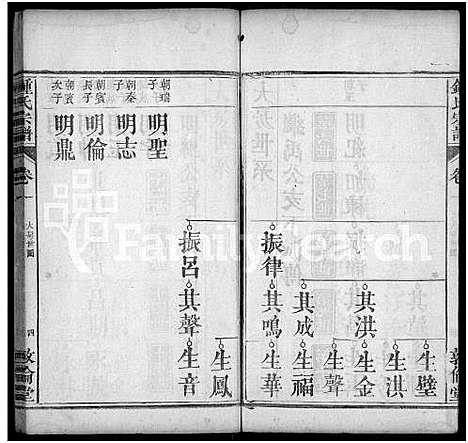 鍾氏宗譜
卷一
生璧
生洪
其洪
生金
生聲
其成
生福
振律
其鳴
生華
生鳳
振呂
其聲
生音
朝瑞
子
明聖
朝秦
子
明志
朝賓
長子
明倫
朝賓
次子
明鼎
鍾氏宗譜
卷一
大房世圖
四
敦倫堂
FamilySearch